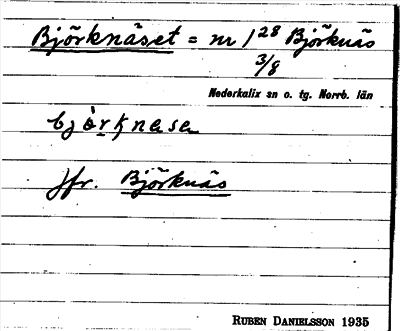 Björknäset = nr 1²⁸ Björknäs
3/8
Nederkalix sn o. tg. Norrb. län
bjò̀rḵnesa
Jfr. Björknäs
RUBEN DANIELSSON 1935